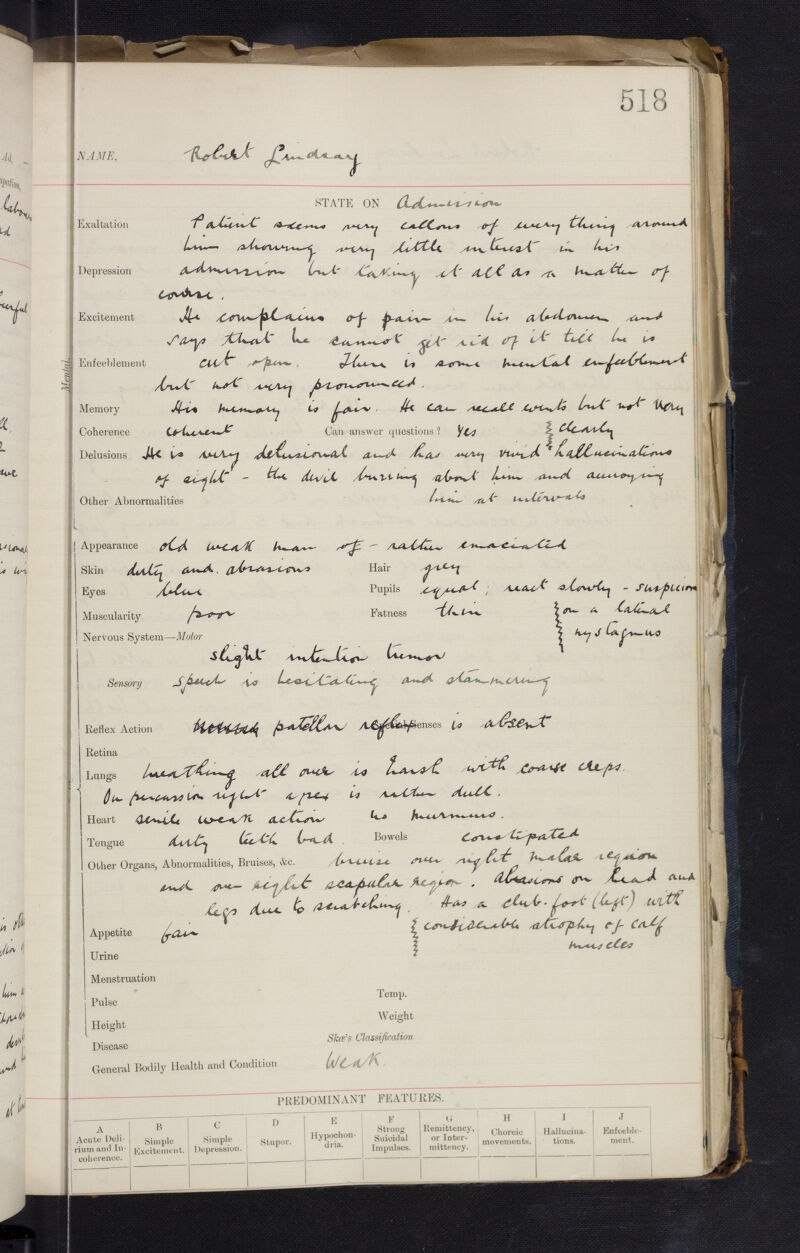 518
NAME. Robert Lindsay
STATE ON Admission
Exaltation Patient seems very callous of every thing around
him showing very little interest in his
Depression admission but taking it all as a matter of
course.
Excitement He complains of pain in his abdomen and
says that he cannot get rid of it till he is
Enfeeblement cut open. There is some mental enfeeblement
but not very pronounced.
Mental.
Memory His memory is fair. He can recall events but not very
Coherence coherent Can answer questions? Yes clearly
Delusions He is very delusional and has very vivid hallucinations
of sight - the devil buzzing about him and annoying
Other Abnormalities him at intervals
Appearance old weak man of - rather emaciated
Skin dirty and abrasions Hair grey
Eyes blue Pupils equal; react slowly - suspicion
Muscularity poor Fatness thin on a lateral
Nervous System—Motor nystagmus
slight intention tremor
Sensory speech is hesitating and stammering
Reflex Action patellar reflex Special Senses is absent
Retina
Lungs breathing all over is harsh with coarse creps.
On percussion right apex is rather dull.
Heart senile weak action no murmurs.
Tongue dirty teeth bad. Bowels constipated
Other Organs, Abnormalities, Bruises, &c. bruise over right malar region
and over right scapular region. Abrasions on head and
legs due to scratching. Has a club-foot (left) with
Appetite fair considerable atrophy of calf
muscles
Urine
Menstruation
Pulse Temp.
Height Weight
Disease Skae's Classification
General Bodily Health and Condition Weak.
PREDOMINANT FEATURES.
A B C D E F G H I J
Acute Delirium and Incoherence. Simple Excitement. Simple Depression. Stupor. Hypochondria. Strong Suicidal Impulses. Remittency, or Intermittency. Choreic movements. Hallucinations. Enfeeblement.